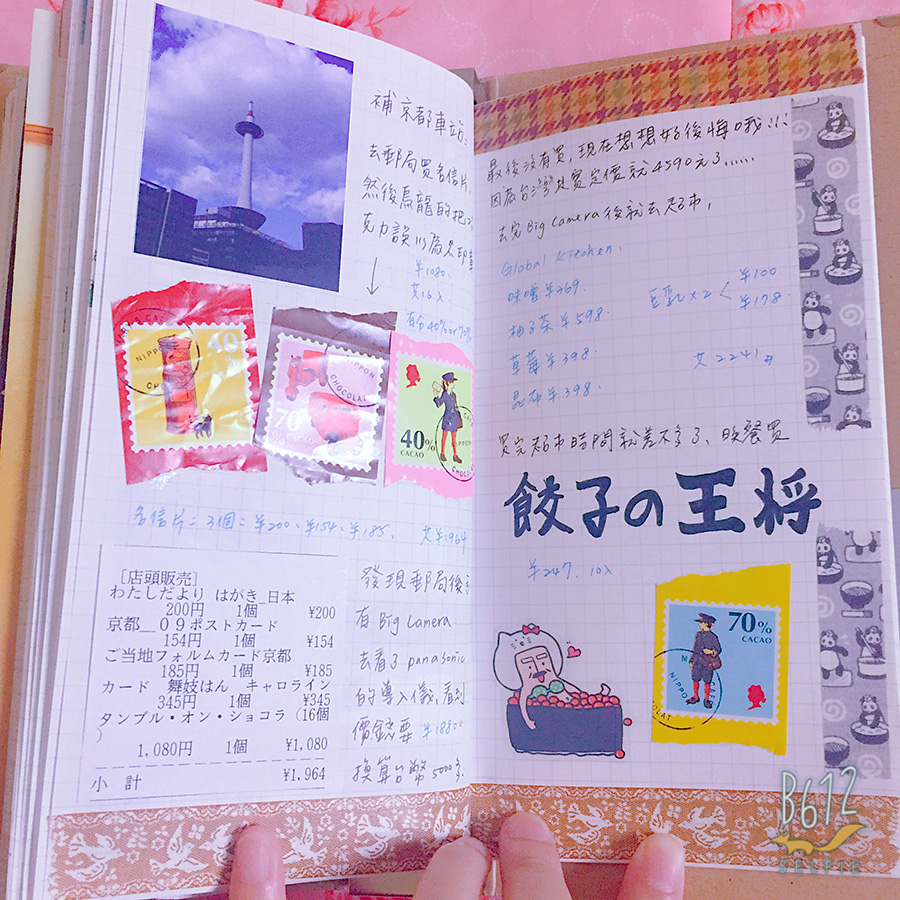 補京都車站:
去郵局買名信片,
然後烏龍的把巧
克力誤以為是印章
¥1080.
共16入
有分40%or70%
40%
CACAO
NIPPON
70%
NIPPON
CHOCOLAT
40%
CACAO
NIPPON
名信片=3個=¥200、¥154、¥185. 共¥1964
[店頭販売]
わたしだより はがき_日本
200円 1個 ¥200
京都__09ポストカード
154円 1個 ¥154
ご当地フォルムカード京都
185円 1個 ¥185
カード 舞妓はん キャロライン
345円 1個 ¥345
タンブル・オン・ショコラ(16個
)
1,080円 1個 ¥1,080
小 計 ¥1,964
發現郵局後
有Big Camera.
去看了panasonic
的導入儀,看到
價錢要¥1880
換算台幣5000多.
最後沒有買,現在想想好後悔哦!!!
因為台灣是賣定價就4590元了......
去完Big Camera後就去超市,
Global Kitchen.
味噌¥369.
豆乳×2 < ¥100
¥178.
柚子茶¥598.
草莓¥398.
共2241
昆布¥398.
買完超市時間就差不多了、晚餐買
餃子の王将
¥247. 10入
70%
CACAO
NIPPON
B612
SELFIE